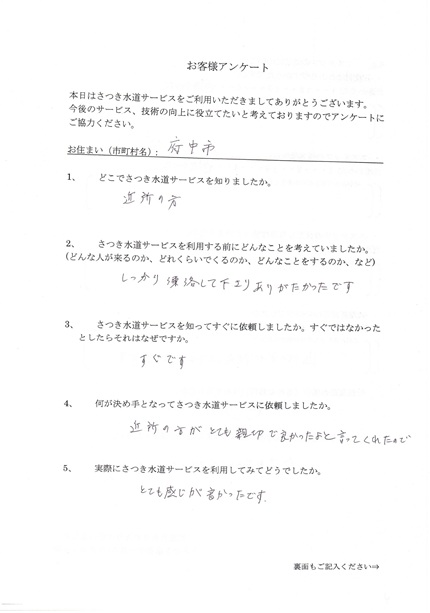 お客様アンケート
本日はさつき水道サービスをご利用いただきましてありがとうございます。
今後のサービス、技術の向上に役立てたいと考えておりますのでアンケートに
ご協力ください。
お住まい（市町村名）： 府中市
1、 どこでさつき水道サービスを知りましたか。
近所の方
2、 さつき水道サービスを利用する前にどんなことを考えていましたか。
（どんな人が来るのか、どれくらいでくるのか、どんなことをするのか、など）
しっかり連絡して下さりありがたかったです
3、 さつき水道サービスを知ってすぐに依頼しましたか。すぐではなかった
としたらそれはなぜですか。
すぐです
4、 何が決め手となってさつき水道サービスに依頼しましたか。
近所の方がとても親切で良かったよと言ってくれたので
5、 実際にさつき水道サービスを利用してみてどうでしたか。
とても感じが良かったです。
裏面もご記入ください⇒